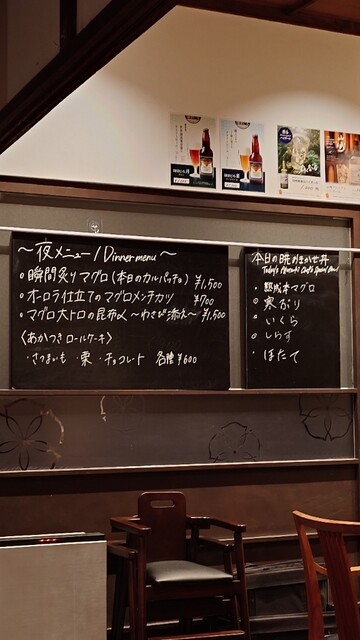 ～夜メニュー / Dinner menu～
○瞬間炙りマグロ(本日のカルパッチョ) ¥1,500
○オーロラ仕立てのマグロメンチカツ ¥700
○マグロ大トロの昆布〆～わさび添え～ ¥1,500
〈あかつきロールケーキ〉
・さつまいも ・栗 ・チョコレート 各種¥600
本日の暁おまかせ丼
○熟成本マグロ
○寒ぶり
○いくら
○しらす
○ほたて